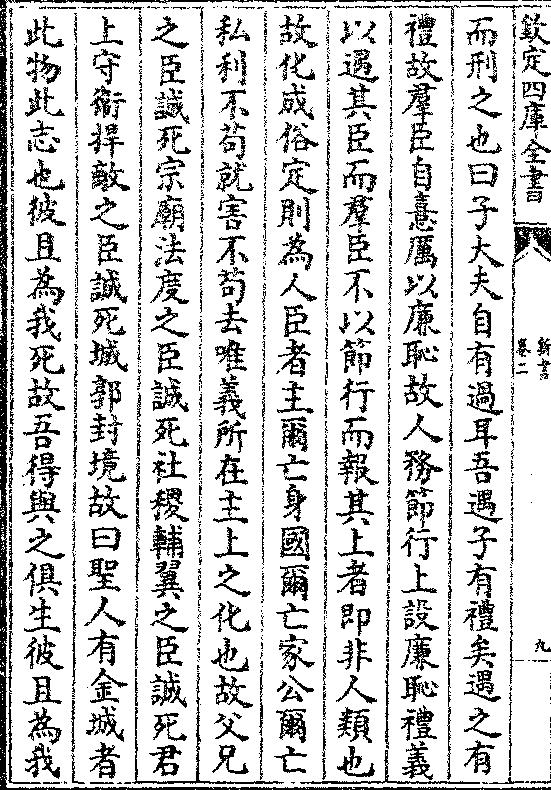 欽定四庫全書
新書
卷二
九
而刑之也曰子大夫自有過耳吾遇子有禮矣遇之有
禮故羣臣自憙厲以廉恥故人務節行上設廉恥禮義
以遇其臣而羣臣不以節行而報其上者即非人類也
故化成俗定則為人臣者主爾亡身國爾亡家公爾亡
私利不苟就害不苟去唯義所在主上之化也故父兄
之臣誠死宗廟法度之臣誠死社稷輔翼之臣誠死君
上守衛捍敵之臣誠死城郭封境故曰聖人有金城者
此物此志也彼且為我死故吾得與之俱生彼且為我